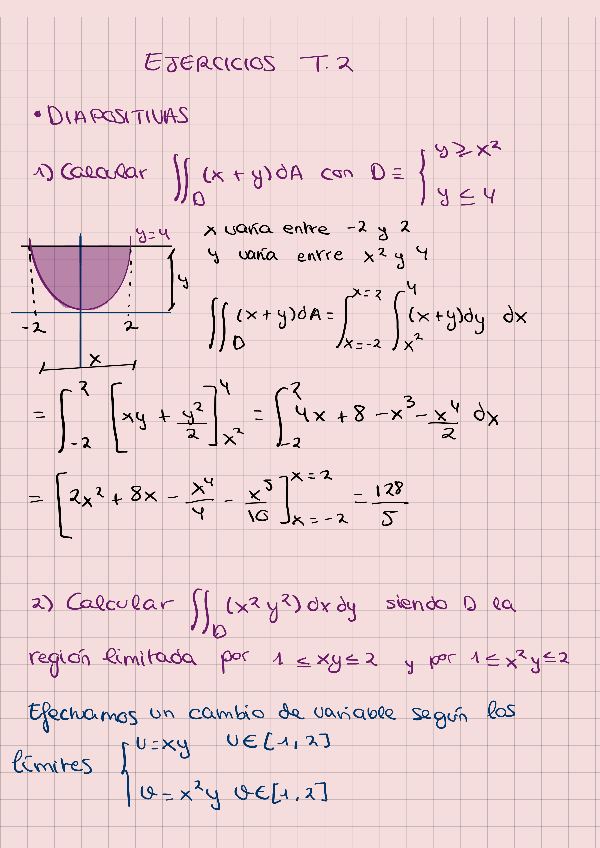 EJERCICIOS T.2
• DIAPOSITIVAS
1) Calcular ∬_D (x + y)dA con D ≡ { y ≥ x²
y ≤ 4
y=4
y
-2 2
x
x varía entre -2 y 2
y varía entre x² y 4
∬_D (x+y)dA = ∫_{x=-2}^{x=2} ∫_{x²}^{4} (x+y)dy dx
= ∫_{-2}^{2} [xy + y²/2]_{x²}^{4} = ∫_{-2}^{2} 4x + 8 - x³ - x⁴/2 dx
= [2x² + 8x - x⁴/4 - x⁵/10]_{x=-2}^{x=2} = 128/5
2) Calcular ∬_D (x²y²) dx dy siendo D la
región limitada por 1 ≤ xy ≤ 2 y por 1 ≤ x²y ≤ 2
Efectuamos un cambio de variable según los
límites { u = xy u ∈ [1, 2]
v = x²y v ∈ [1, 2]